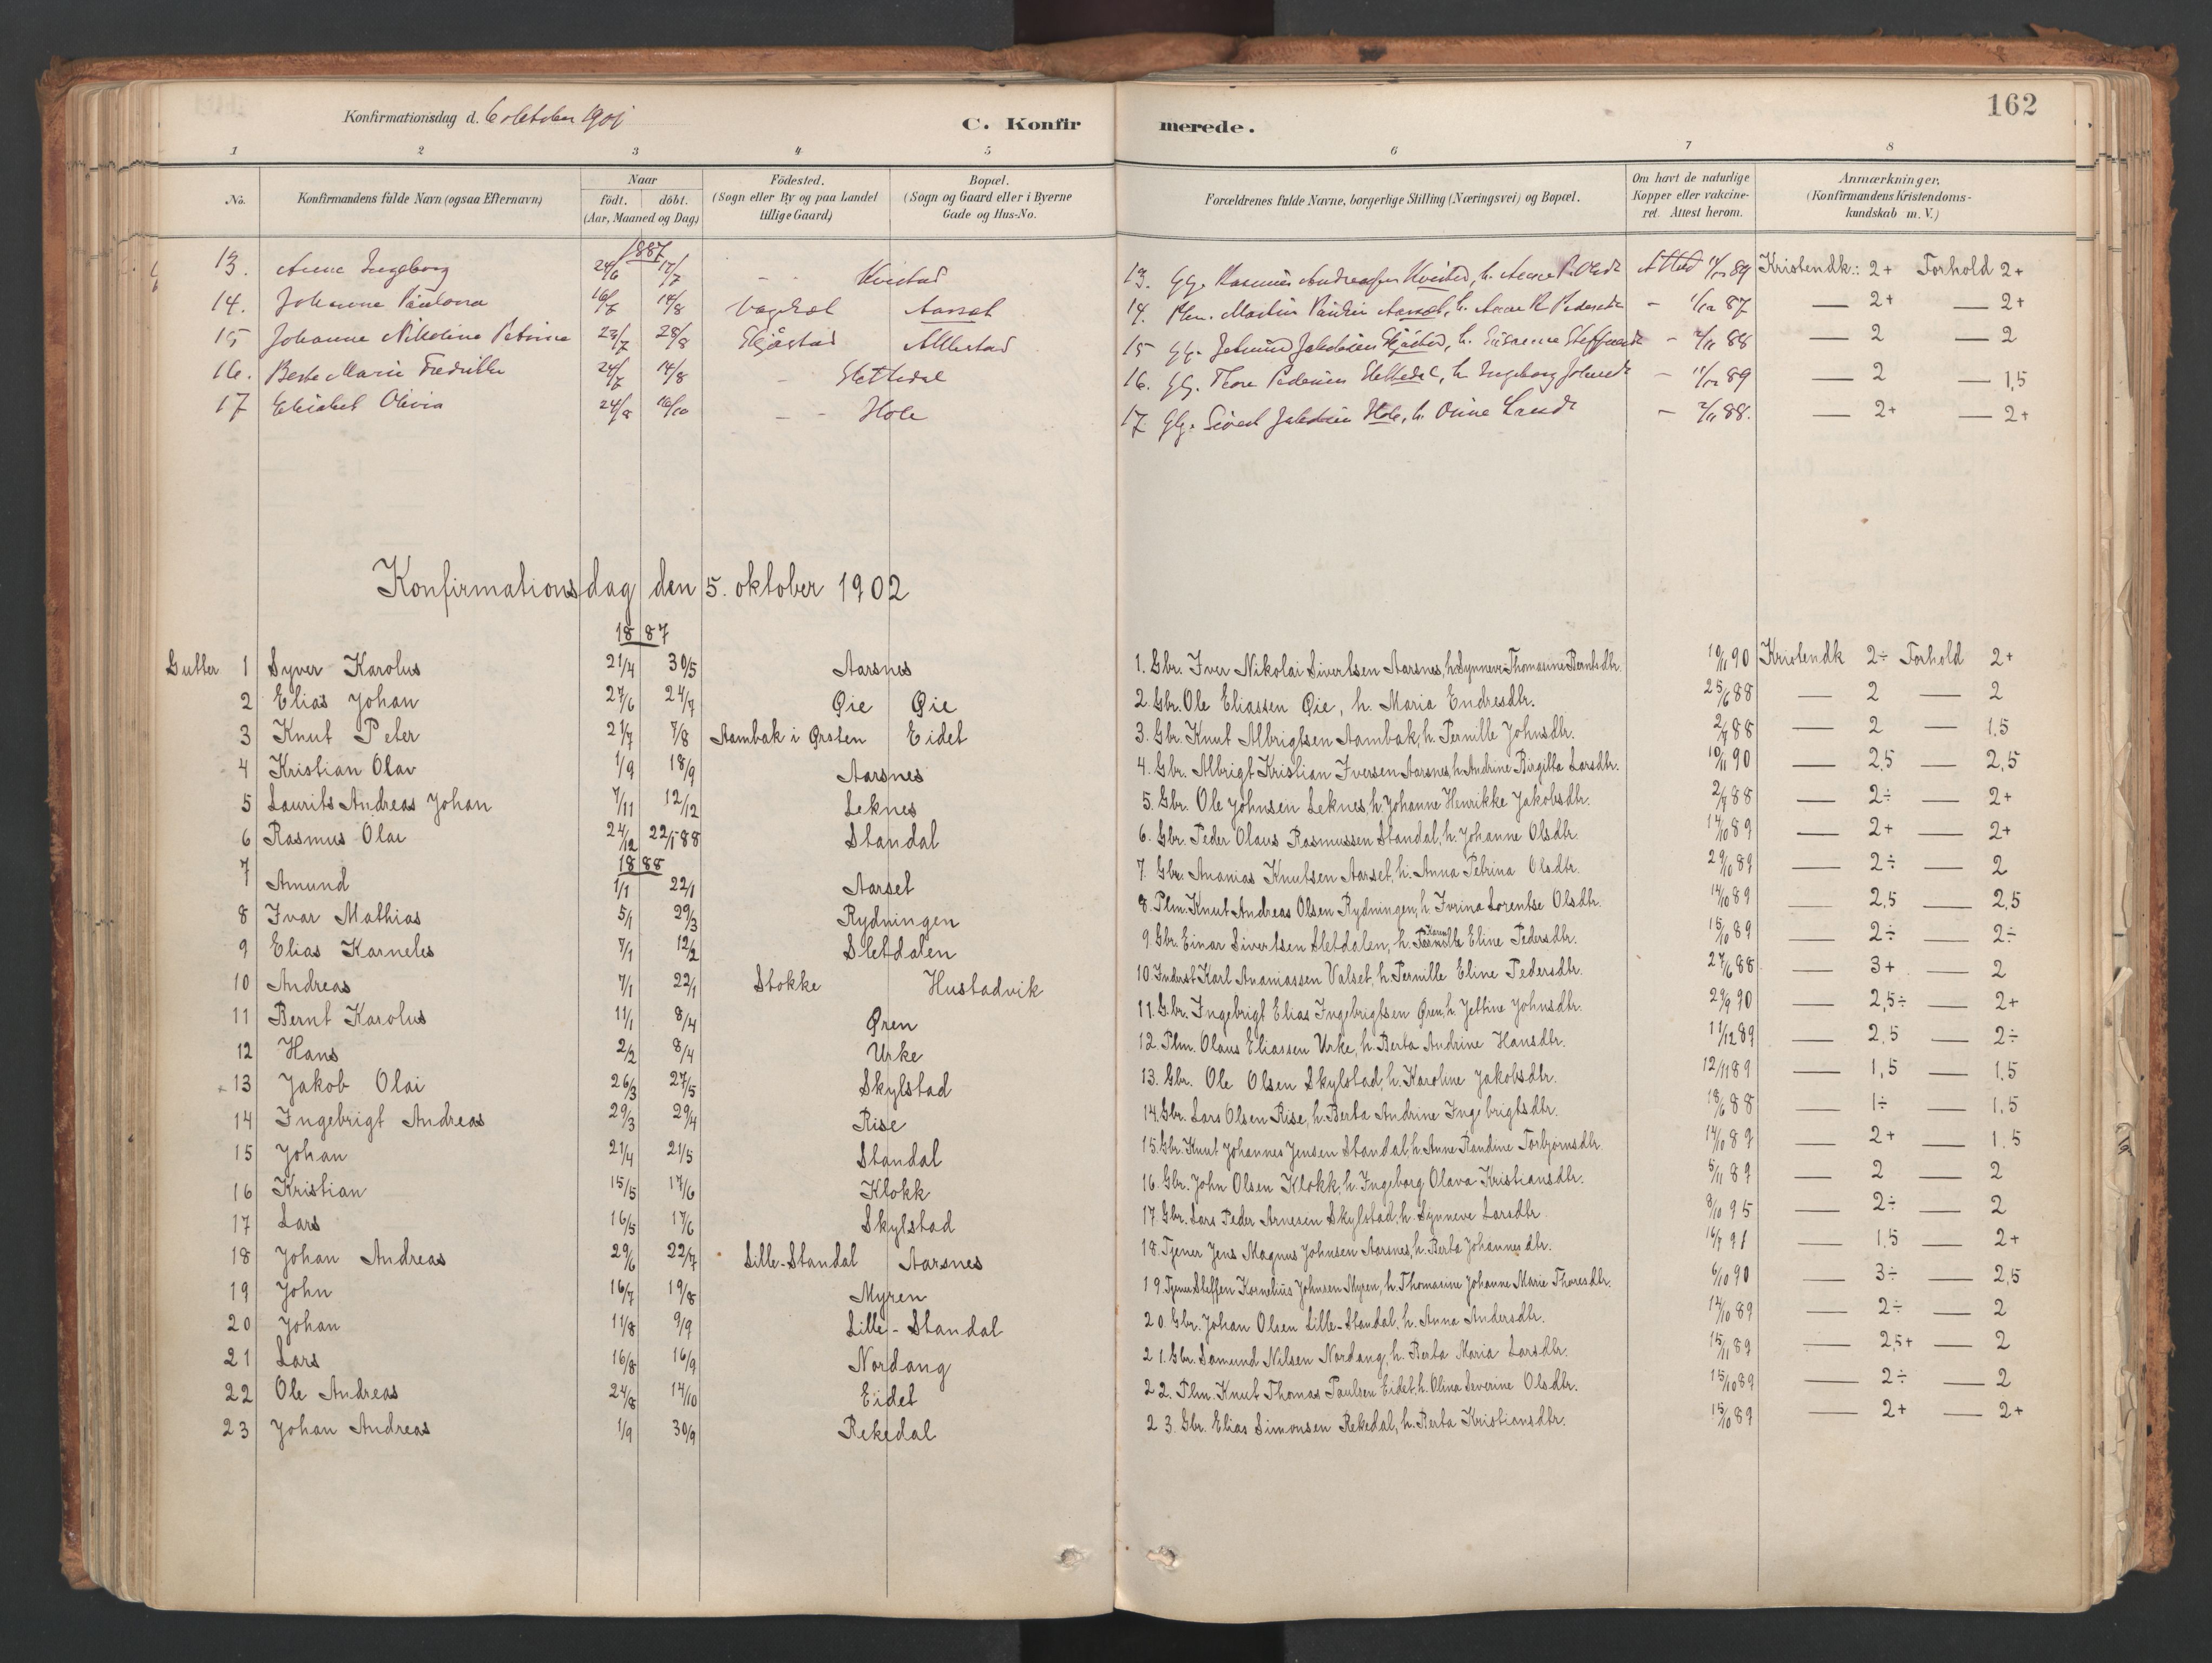 162
Konfirmationsdag d. 6 oktober 1901
C. Konfirmerede.
1 2 3 4 5 6 7 8
No. Konfirmandens fulde Navn (ogsaa Efternavn) Naar födt. döbt. (Aar, Maaned og Dag) Födested. (Sogn eller By og paa Landet tillige Gaard) Bopæl. (Sogn og Gaard eller i Byerne Gade og Hus-No. Forældrenes fulde Navne, borgerlige Stilling (Næringsvei) og Bopæl. Om havt de naturlige Kopper eller vakcineret. Attest herom. Anmærkninger. (Konfirmandens Kristendomskundskab m. V.)
1887
13. Anne Ingeborg 24/6 17/7 - - Kvistad 13. Gg. Rasmus Andreassen Kvistad, h. Anne P. Olsdr Attest 89 Kristendk.: 2+ Forhold 2+
14. Johanne Paulona 16/7 14/8 Aarset 14. Plm. Martin Aarset, h. Anne R. Pedersdr - 1/12 87 — 2+ — 2+
15 Johanne Nikoline Petrine 23/7 28/8 Skjåstad Allestad 15 Gg. Jakobsen Skjåstad, h. Susanne - 2/11 88 — 2 — 2
16. Berte Marie Fredrikke 24/7 14/8 - Slettedal 16. Gg. Thore Pedersen Slettedal, h. Ingeborg - 11/12 89 — 2 — 1,5
17 Elisabet Olivia 24/8 16/10 - - Hole 17. Gg. Sivert Jakobsen Hole, h. Oline - 2/11 88. — 2+ — 2+
Konfirmationsdag den 5. oktober 1902
1887
Gutter 1 Syver Karolus 21/4 30/5 Aarsnes 1. Gbr. Iver Nikolai Sivertsen Aarsnes, h. Synneve Thomasine Berntsdtr. 10/11 90 Kristendk 2÷ Forhold 2+
2 Elias Johan 27/6 24/7 Øie Øie 2. Gbr. Ole Eliassen Øie, h. Maria Endresdtr. 25/6 88 — 2 — 2
3 Knut Peter 21/7 7/8 Aambak i Ørsten Eidet 3. Gbr. Knut Albrigtsen Aambak, h. Pernille Johnsdtr. 2/7 88 — 2 — 1,5
4 Kristian Olav 1/9 18/9 Aarsnes 4. Gbr. Albrigt Kristian Iversen Aarsnes, h. Andrine Birgitta Larsdtr. 10/11 90 — 2,5 — 2,5
5 Laurits Andreas Johan 7/11 12/12 Leknes 5. Gbr. Ole Johnsen Leknes, h. Johanne Henrikke Jakobsdtr. 2/7 88 — 2÷ — 2+
6 Rasmus Olai 24/12 22/1 88 Standal 6. Gbr. Peder Olaus Rasmussen Standal, h. Johanne Olsdtr. 14/10 89 — 2+ — 2+
1888
7 Amund 1/1 22/1 Aarset 7. Gbr. Ananias Knutsen Aarset, h. Anna Petrina Olsdtr. 29/10 89 — 2÷ — 2
8 Ivar Mathias 5/1 29/3 Rydningen 8. Plm. Knut Andreas Olsen Rydningen, h. Ivrina Lorentse Olsdtr. 14/10 89 — 2,5 — 2,5
9 Elias Karneles 7/1 12/2 Sletdalen 9. Gbr. Einar Sivertsen Sletdalen, h. Eline Pedersdtr. 15/10 89 — 2÷ — 2÷
10 Andreas 7/1 22/1 Stokke Hustadvik 10 Inderst Karl Ananiassen Valset, h. Pernille Eline Pedersdtr. 27/6 88 — 3+ — 2
11 Bernt Karolus 11/1 8/4 Øren 11. Gbr. Ingebrigt Elias Ingebrigtsen Øren, h. Jettine Johnsdtr. 29/9 90 — 2,5÷ — 2+
12 Hans 2/2 8/4 Urke 12. Plm. Olaus Eliassen Urke, h. Berta Andrine Hansdtr. 11/12 89 — 2,5 — 2÷
13 Jakob Olai 26/3 27/5 Skylstad 13. Gbr. Ole Olsen Skylstad, h. Karoline Jakobsdtr. 12/11 89 — 1,5 — 1,5
14 Ingebrigt Andreas 29/3 29/4 Rise 14. Gbr. Lars Olsen Rise, h. Berta Andrine Ingebrigtsdtr. 18/6 88 — 1÷ — 1,5
15 Johan 21/4 21/5 Standal 15. Gbr. Knut Johannes Jensen Standal, h. Anne Randine Torbjørnsdtr. 14/10 89 — 2+ — 1,5
16 Kristian 15/5 17/6 Klokk 16. Gbr. John Olsen Klokk, h. Ingeborg Olava Kristiansdtr. 5/11 89 — 2 — 2
17 Lars 16/5 17/6 Skylstad 17. Gbr. Lars Peder Arnesen Skylstad, h. Synneve Larsdtr 8/10 95 — 2÷ — 2
18 Johan Andreas 29/6 22/7 Lille-Standal Aarsnes 18. Tjener Jens Magnus Johnsen Aarsnes, h. Berta Johannesdtr. 16/9 91 — 1,5 — 2+
19 John 16/7 19/8 Myren 19. Tjener Steffen Kornelius Johnsen Myren, h. Thomasine Johanne Marie Thoresdtr. 6/10 90 — 3÷ — 2,5
20 Johan 11/8 9/9 Lille-Standal 20. Gbr. Johan Olsen Lille-Standal, h. Anna Andersdtr. 14/10 89 — 2÷ — 2
21 Lars 16/8 16/9 Nordang 21. Gbr. Samund Nilsen Nordang, h. Berta Maria Larsdtr. 15/11 89 — 2,5+ — 2
22 Ole Andreas 24/8 14/10 Eidet 22. Plm. Knut Thomas Paulsen Eidet, h. Olina Severine Olsdtr. 15/10 89 — 2÷ — 2
23 Johan Andreas 1/9 30/9 Rekedal 23. Gbr. Elias Simonsen Rekedal, h. Berta Kristiansdtr. 15/10 89 — 2+ — 2+